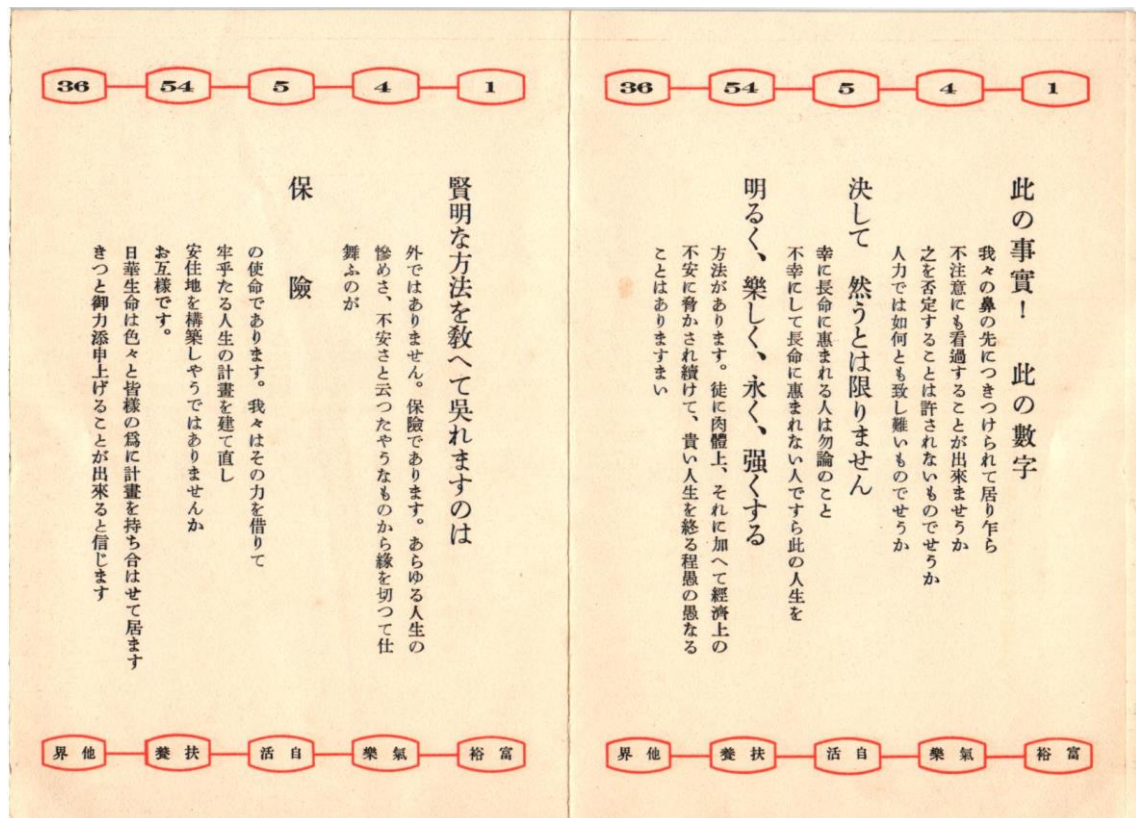 1 4 5 54 36
此の事實! 此の數字
我々の鼻の先につきつけられて居り乍ら
不注意にも看過することが出來ませうか
之を否定することは許されないものでせうか
人力では如何とも致し難いものでせうか
決して 然うとは限りません
幸に長命に惠まれる人は勿論のこと
不幸にして長命に惠まれない人ですら此の人生を
明るく、樂しく、永く、强くする
方法があります。徒に肉體上、それに加へて經濟上の
不安に脅かされ續けて、貴い人生を終る程愚の愚なる
ことはありますまい
富裕 氣樂 自活 扶養 他界
1 4 5 54 36
賢明な方法を敎へて吳れますのは
外ではありません。保險であります。あらゆる人生の
慘めさ、不安さと云つたやうなものから緣を切つて仕
舞ふのが
保險
の使命であります。我々はその力を借りて
牢乎たる人生の計畫を建て直し
安住地を構築しやうではありませんか
お互樣です。
日華生命は色々と皆樣の爲に計畫を持ち合はせて居ます
きつと御力添申上げることが出來ると信じます
富裕 氣樂 自活 扶養 他界